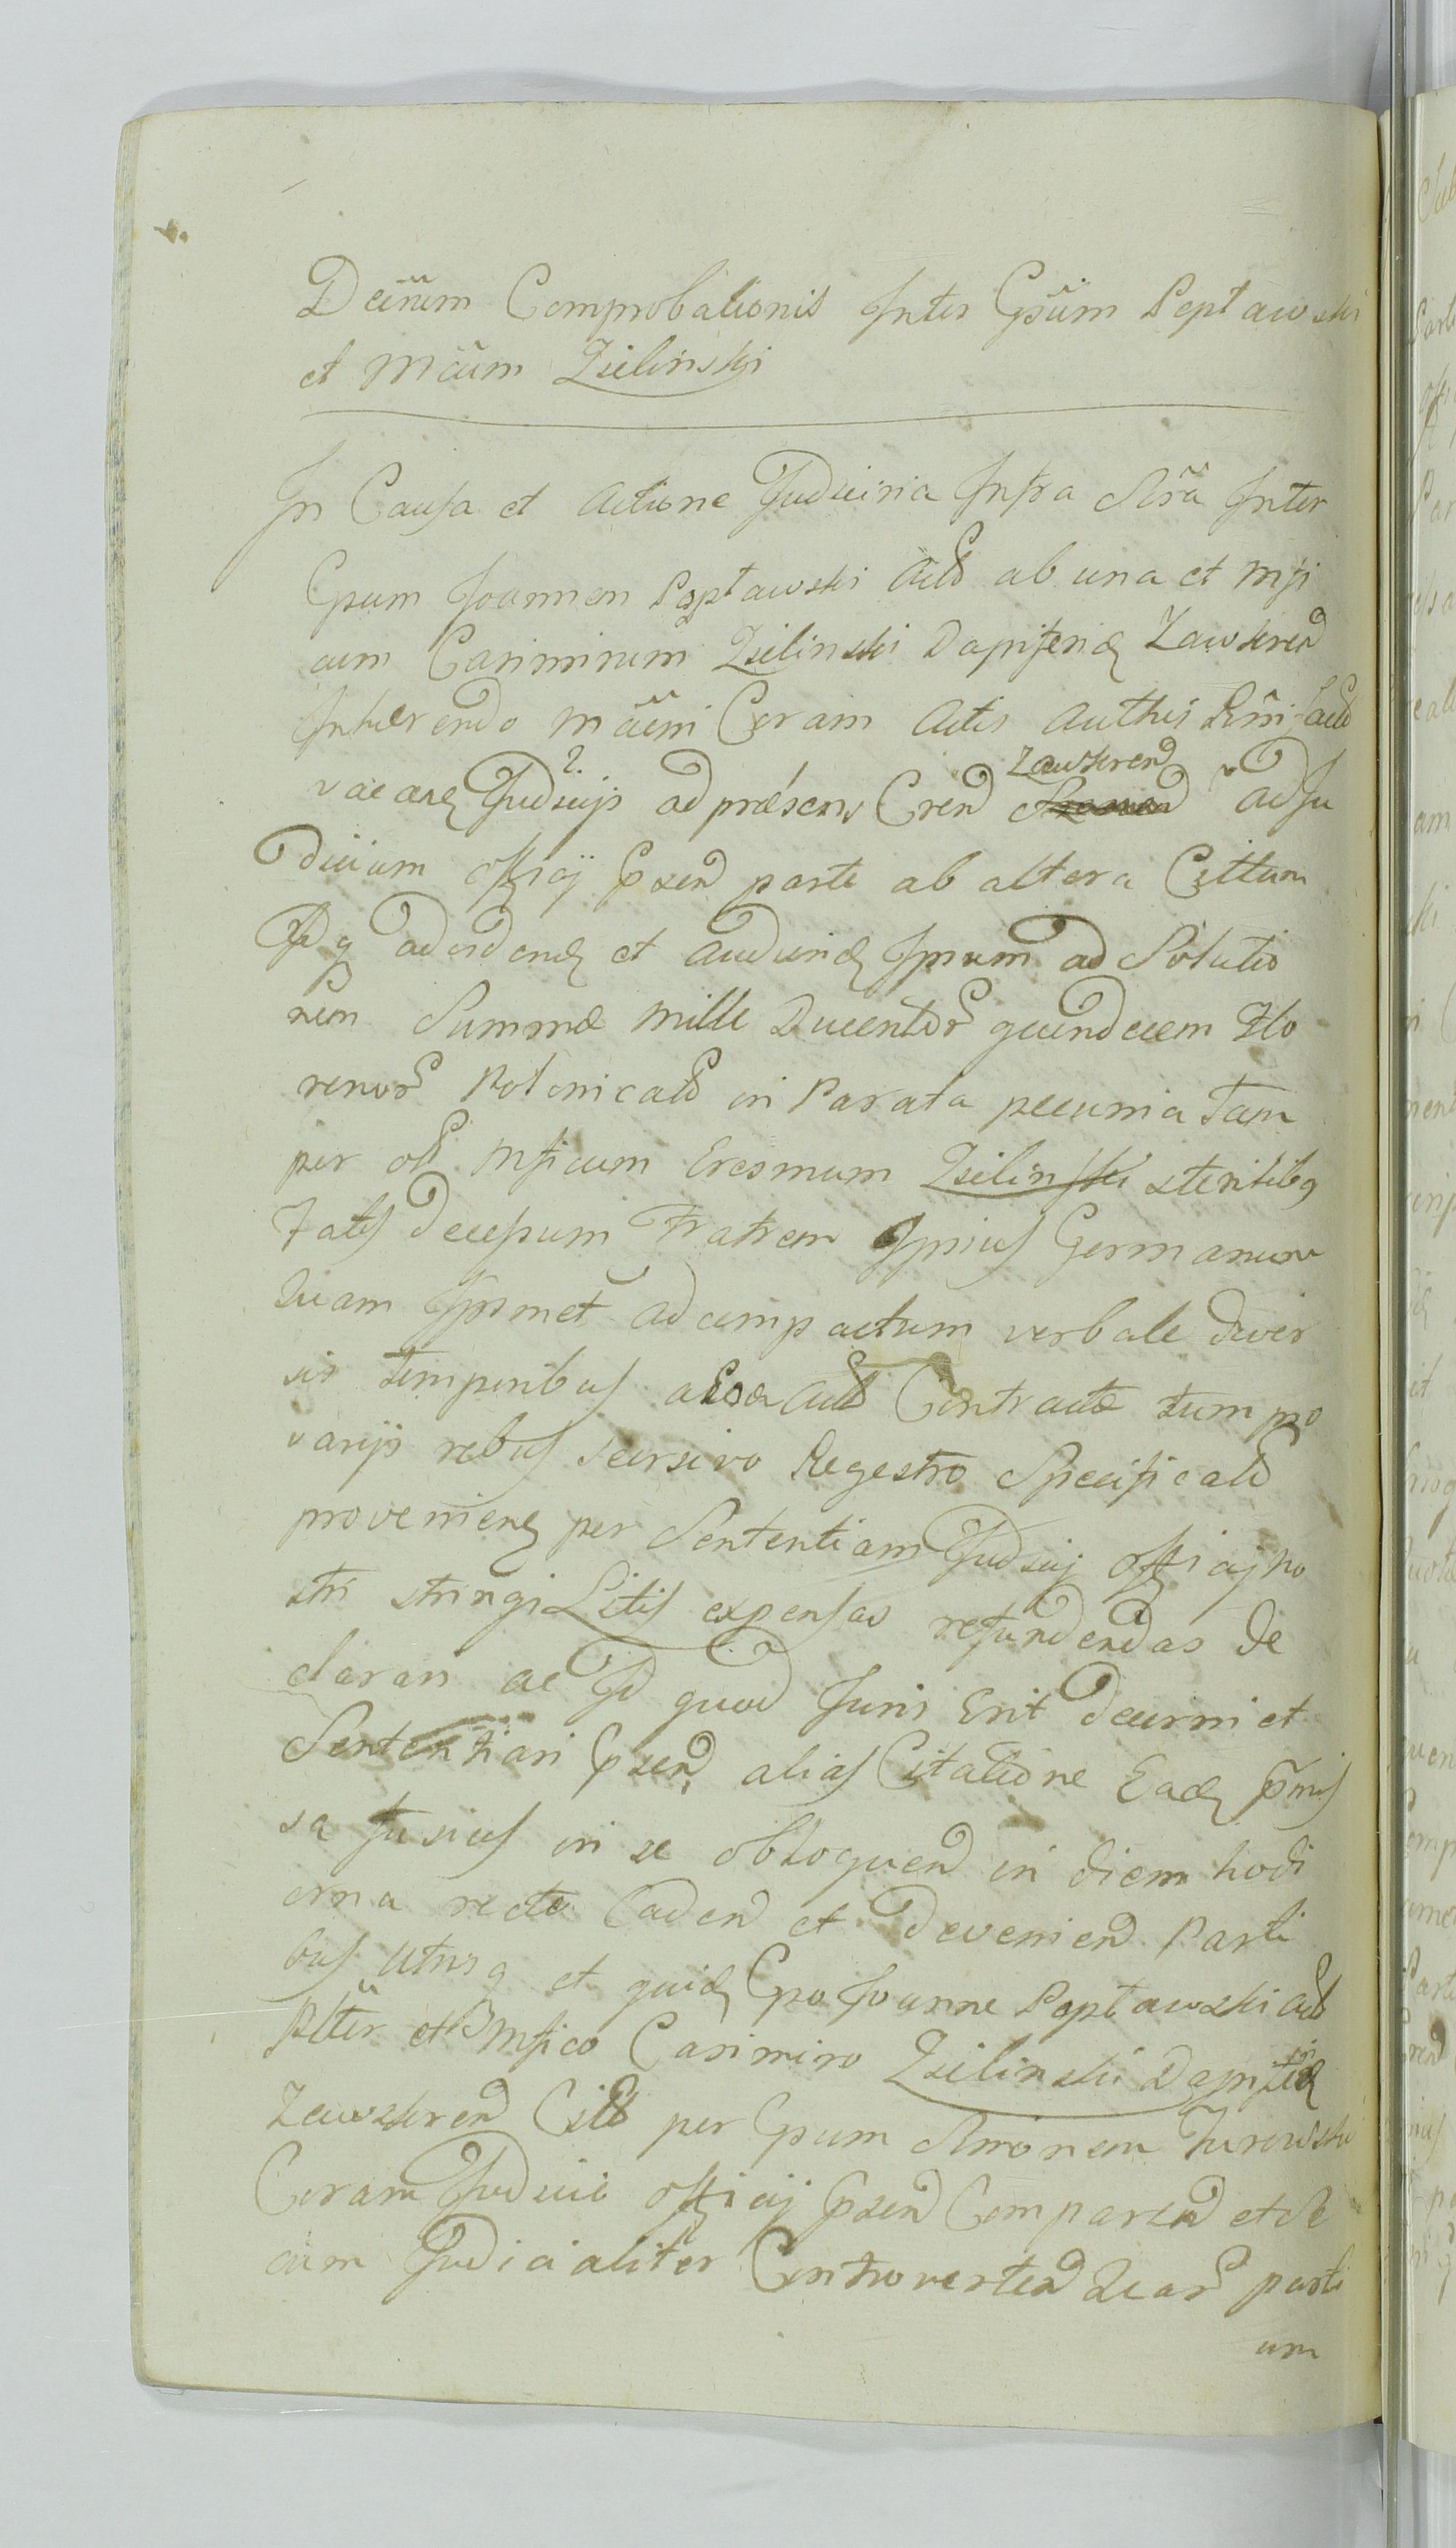 Decrum Comprobationis Inter Gsum Peptawski
et Mcum Zielinski
In Causa et Actione Judiciria Infra Scra Inter
Gsum Joannem Peptawski Actt ab una et Mfi
cum Casimirum Zielinski Dapiferid Zawkren
Inherendo Coram Actis Authcis
Judicijs ad præsens Zawkren ad Ju
dicium Officij Psen parte ab altera Cittum
Id q ad et audiend Ipsum ad Solutio
nem Summæ Mille Ducentor quindecem Flo
renor Polonicall in Parata pecunia Tam
per olt Mficum Erasmum Zielinski sterilibq
Fatis Decessum Fratrem Ipsius Germanum
quam Ipsmet ad compactum verbale diver
sis temporibus Contractæ tum pro
varijs rebus seorsivo Regestro Specificatt
provenienq per Sententiam Judicij Officij no
stri stringi Litis expensas refundendas De
clarari ac Id quod Juris Erit decerni et
Sententiari Psen alias Citatione Eadq Pmis
sa fusius in se obloquen in diem hodi
erna recte Caden et Devenien Parti
bus Utrisq et quidq Gso Joanne Peptawski Actt
Plter et Mfico Casimiro Zielinski Dapiferid
Zawkren Citt per Gsum Simonem Turowski
Coram Judicio Officij Psen Comparen et se
cum Judicialiter Controverten quar parti
um